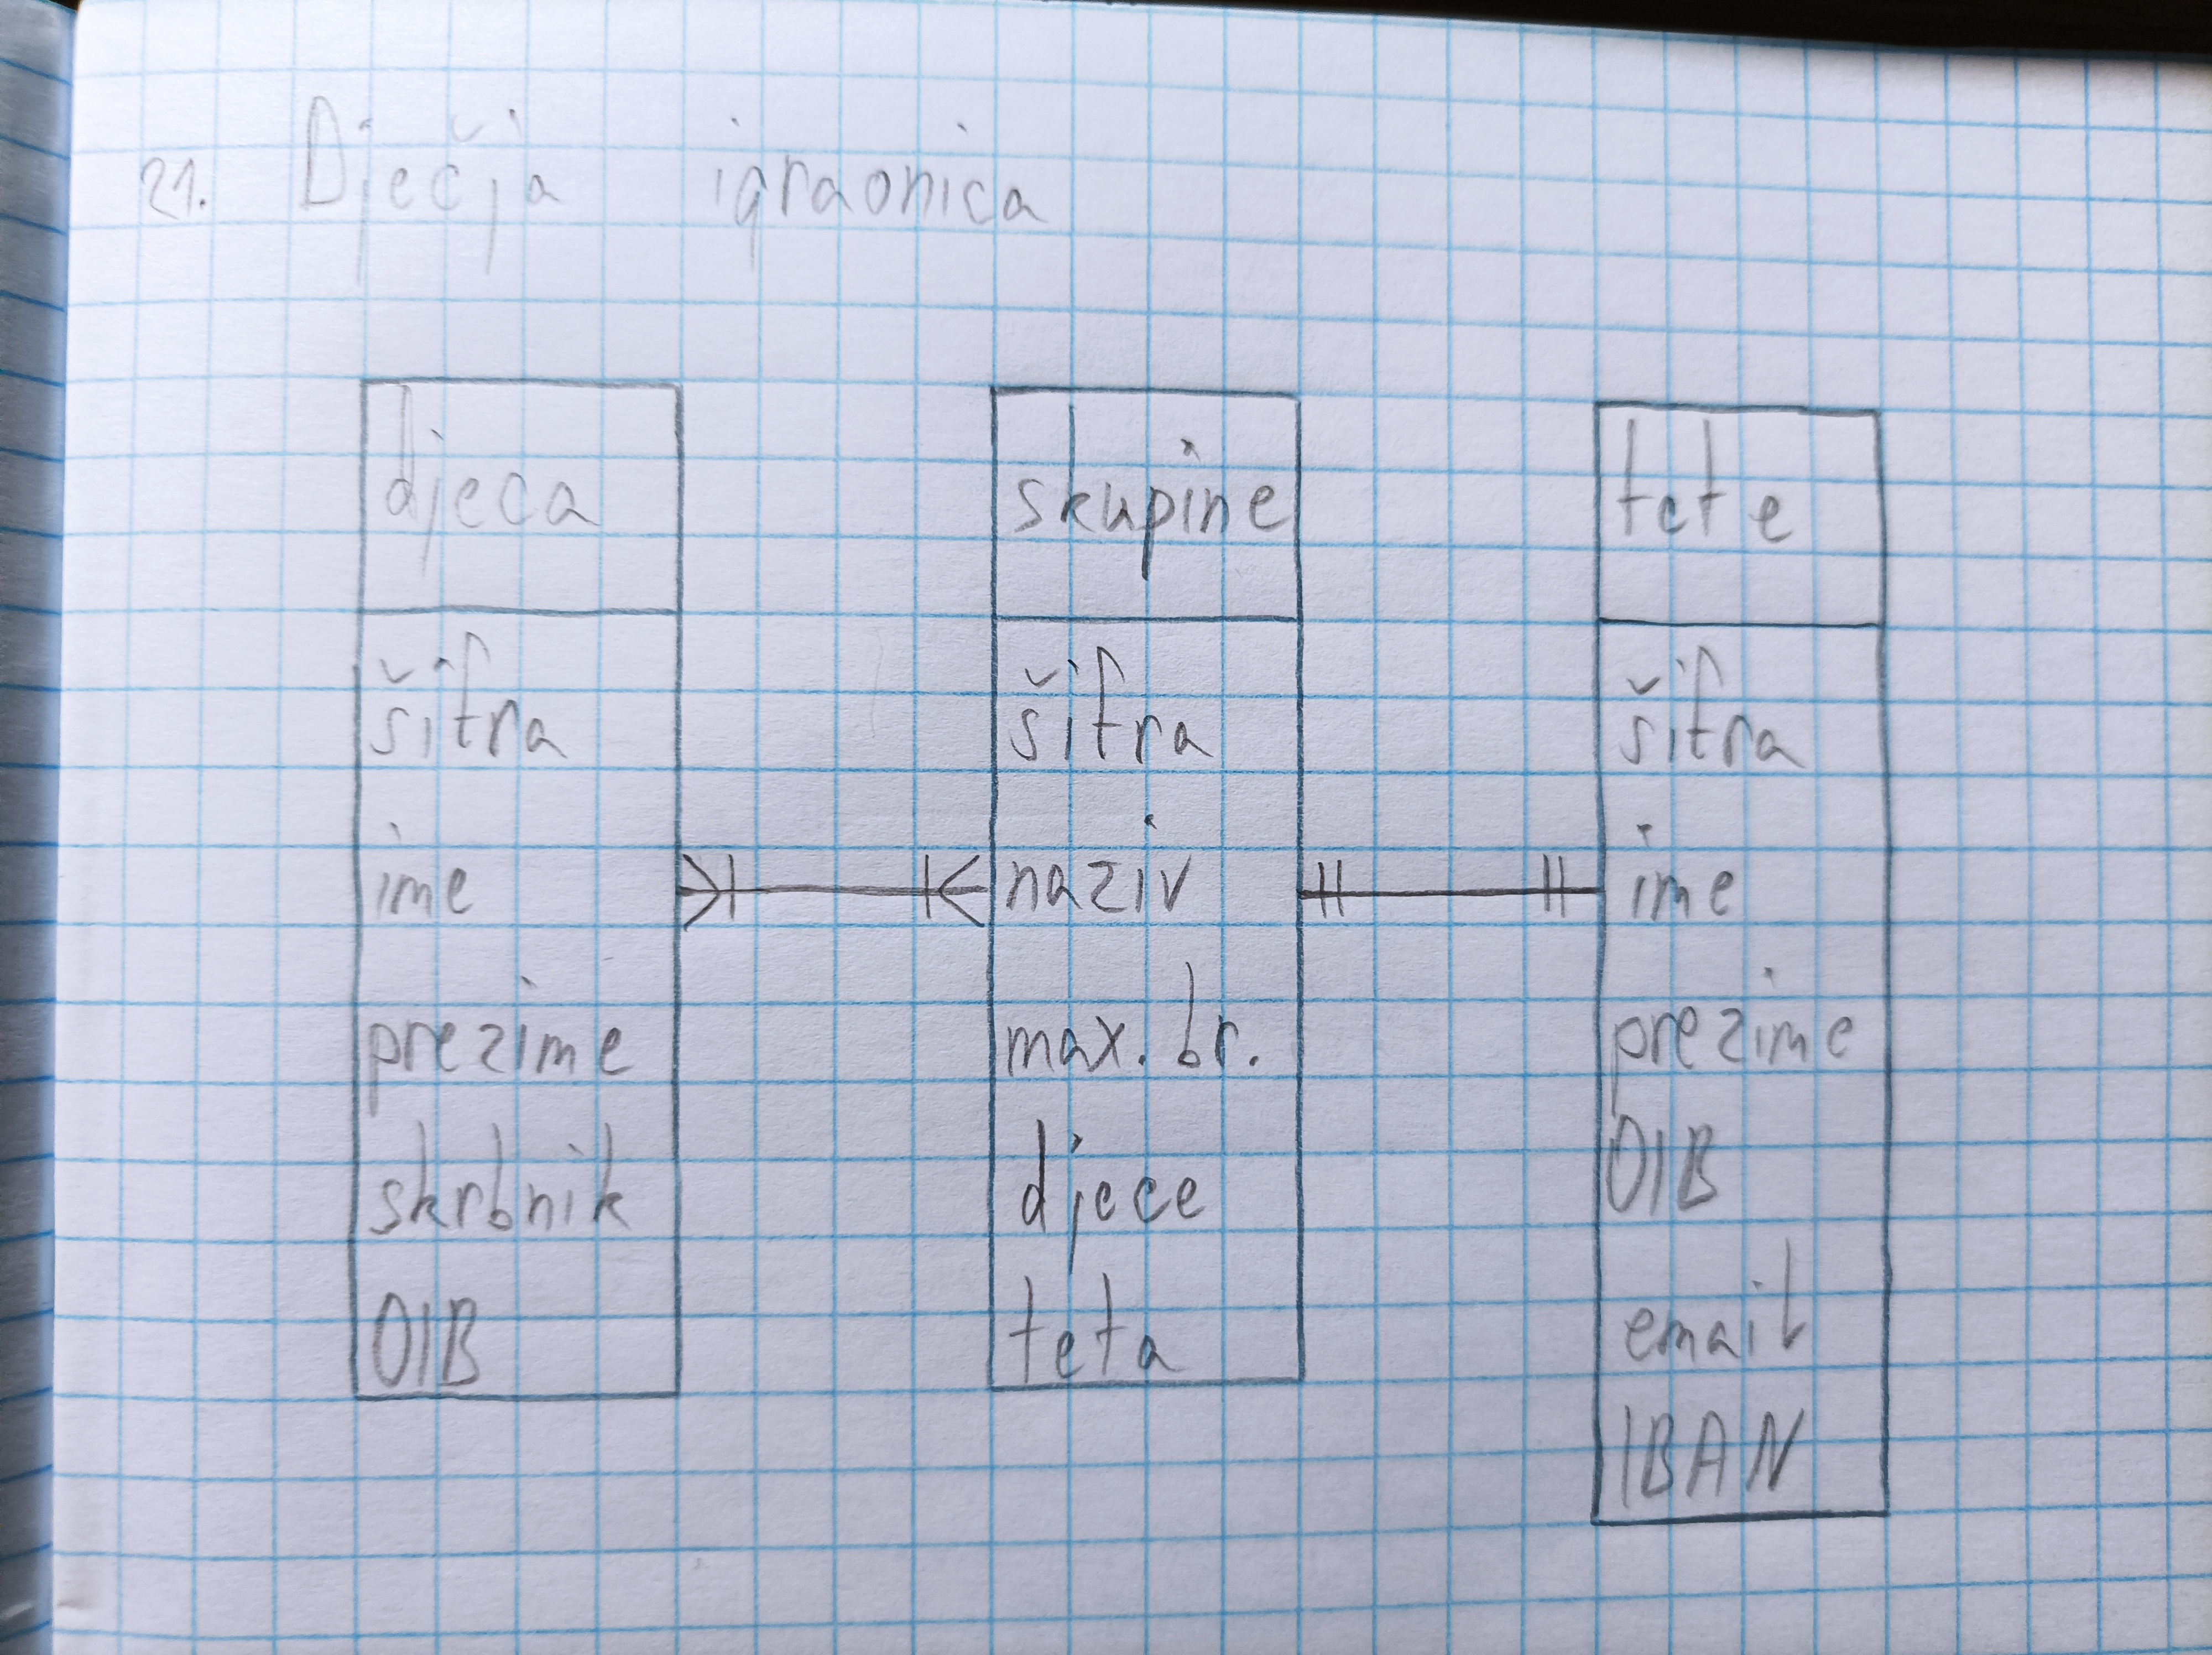 21. Dječja igraonica
djeca
šifra
ime
prezime
skrbnik
OIB
skupine
šifra
naziv
max. br.
djece
teta
tete
šifra
ime
prezime
OIB
email
IBAN